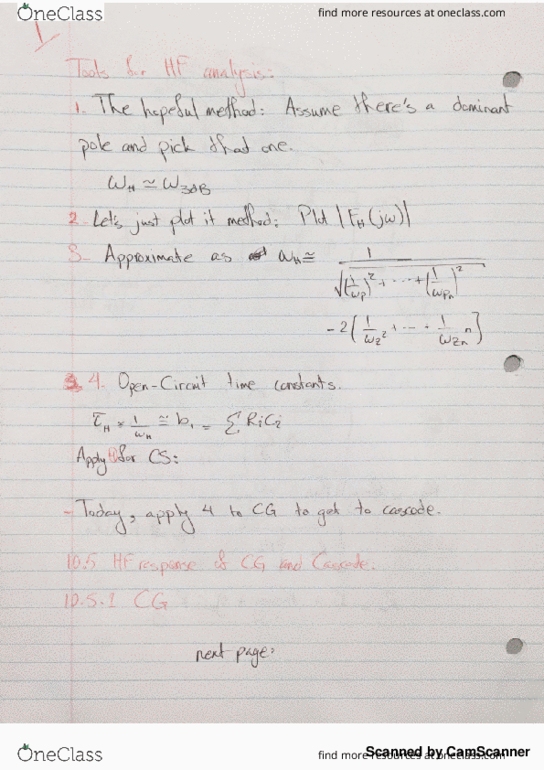 OneClass
find more resources at oneclass.com
1
Tools for HF analysis:
1. The hopeful method: Assume there's a dominant
pole and pick that one.
ω_H ≃ ω_3dB
2. Let's just plot it method: Plot |F_H(jω)|
3- Approximate as ω_H ≃ 1 / √((1/ω_p)² + ... + (1/ω_pn)²
- 2(1/ω_z² + ... + 1/ω_zn^n)
4. Open-Circuit time constants.
τ_H ≃ 1/ω_H ≅ b₁ = Σ RiCi
Apply for CS:
- Today, apply 4 to CG to get to cascode.
10.5 HF response of CG and Cascode.
10.5.1 CG
next page:
OneClass
find more resources at oneclass.com
Scanned by CamScanner